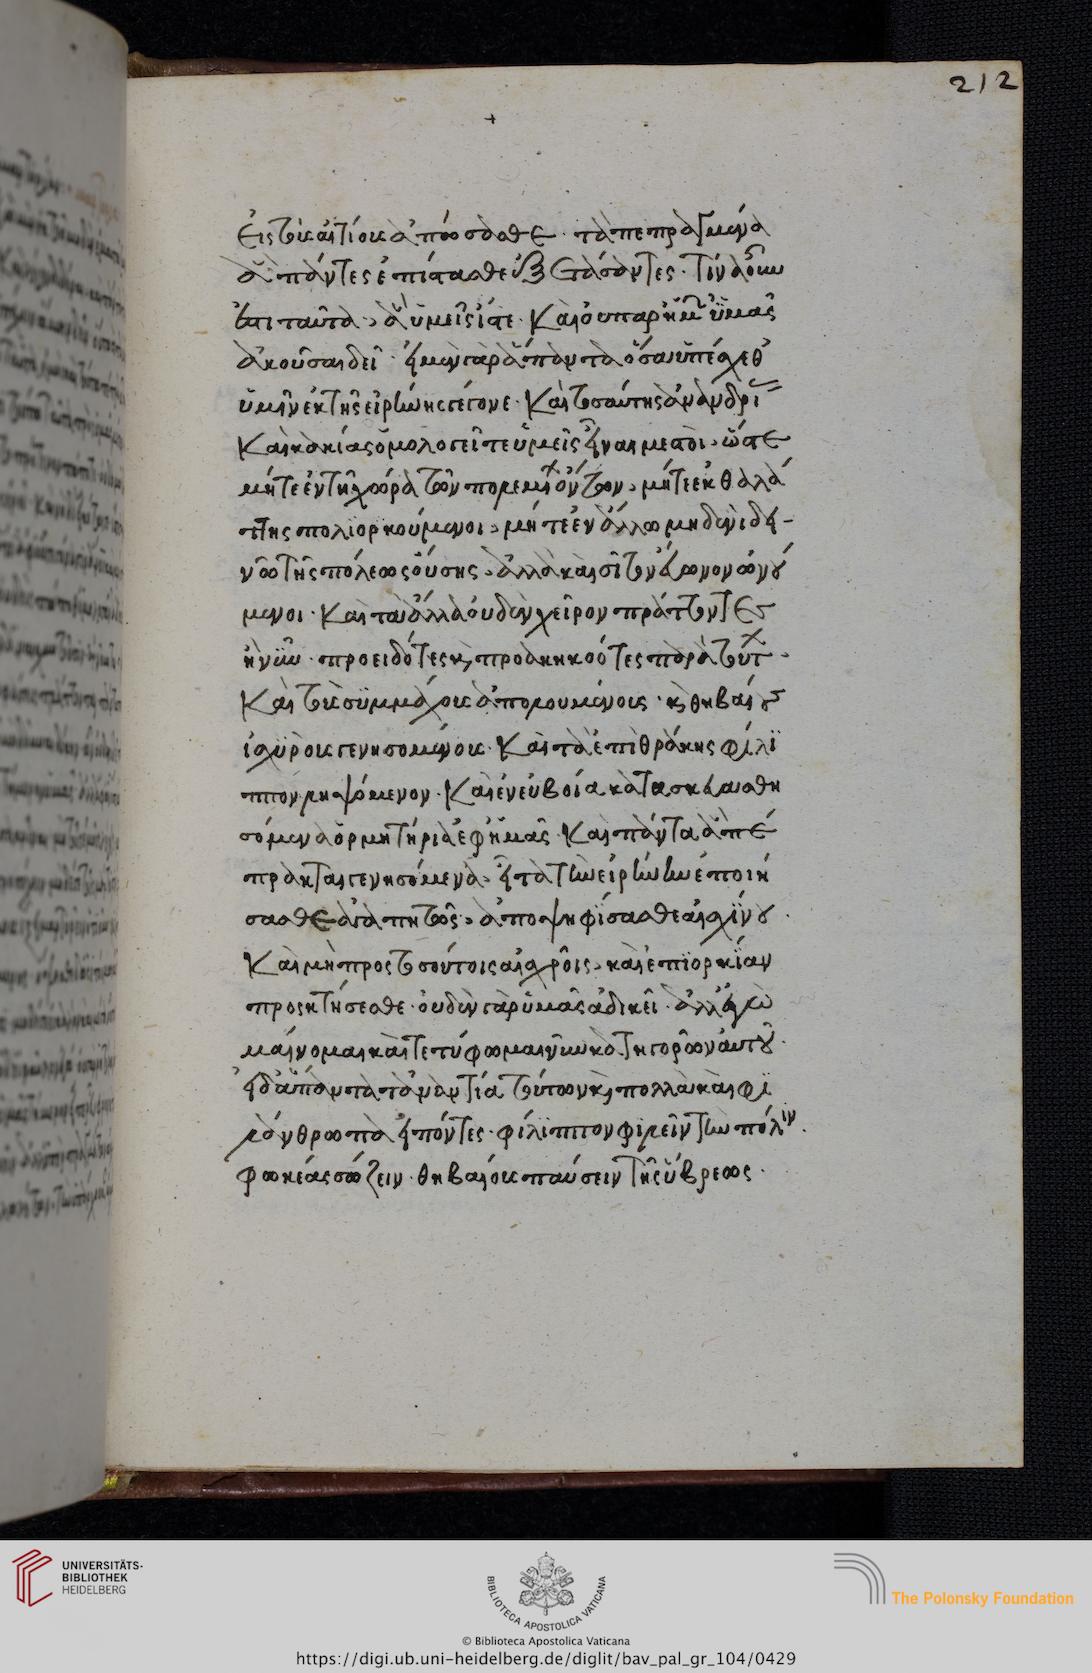 212
εἰς τοὺς αἰτίους ἀπώσασθε. τὰ πεπραγμένα
ἃ πάντες ἐπίστασθε ἐξετάσαντες. τίνα οὖν
ἐστι ταῦτα, ἃ ὑμεῖς ἴστε. καὶ οὐ παρ' ἡμῶν ὑμᾶς
ἀκοῦσαι δεῖ. εἰ μὲν γὰρ ἅπαντα ὅσα ὑπέσχεθ'
ὑμῖν ἐκ τῆς εἰρήνης γέγονε. καὶ τοσαύτης ἀνανδρίας
καὶ κακίας ὁμολογεῖτε ὑμεῖς εἶναι μεστοὶ, ὥστε
μήτε ἐν τῇ χώρᾳ τῶν πολεμίων ὄντων, μήτε ἐκ θαλά
ττης πολιορκούμενοι, μήτε ἐν ἄλλῳ μηδενὶ δει-
νῷ τῆς πόλεως οὔσης, ἀλλὰ καὶ σῖτον εὔωνον ὠνού
μενοι. καὶ τὰ ἄλλα οὐδὲν χεῖρον πράττοντες
ἢ νῦν. προειδότες καὶ προακηκοότες παρὰ τούτων.
καὶ τοὺς συμμάχους ἀπολουμένους. καὶ θηβαίους
ἰσχυροὺς γενησομένους. καὶ τὰ ἐπὶ θράκης φίλι
ππον ληψόμενον. καὶ ἐν εὐβοία κατασκευασθη
σόμενα ὁρμητήρια ἐφ' ἡμᾶς. καὶ πάντα ἃ πέ
πρακται γενησόμενα, εἶτα τὴν εἰρήνην ἐποιή
σασθε ἀγαπητῶς, ἀποψηφίσασθε αἰσχίνου.
καὶ μὴ προς τοσούτοις αἰσχροῖς, καὶ ἐπιορκίαν
προσκτήσεσθε. οὐδὲν γὰρ ὑμᾶς ἀδικεῖ. ἀλλ' ἐγὼ
μαίνομαι καὶ τετύφωμαι νῦν κατηγορῶν αὐτοῦ.
εἰ δ' ἅπαντα τὀναντία τούτων καὶ πολλὰ καὶ φι
λάνθρωπα εἰπόντες. φίλιππον φιλεῖν τὴν πόλιν.
φωκέας σώζειν. θηβαίους παύσειν τῆς ὕβρεως.
UNIVERSITÄTS-
BIBLIOTHEK
HEIDELBERG
BIBLIOTECA APOSTOLICA VATICANA
The Polonsky Foundation
© Biblioteca Apostolica Vaticana
https://digi.ub.uni-heidelberg.de/diglit/bav_pal_gr_104/0429